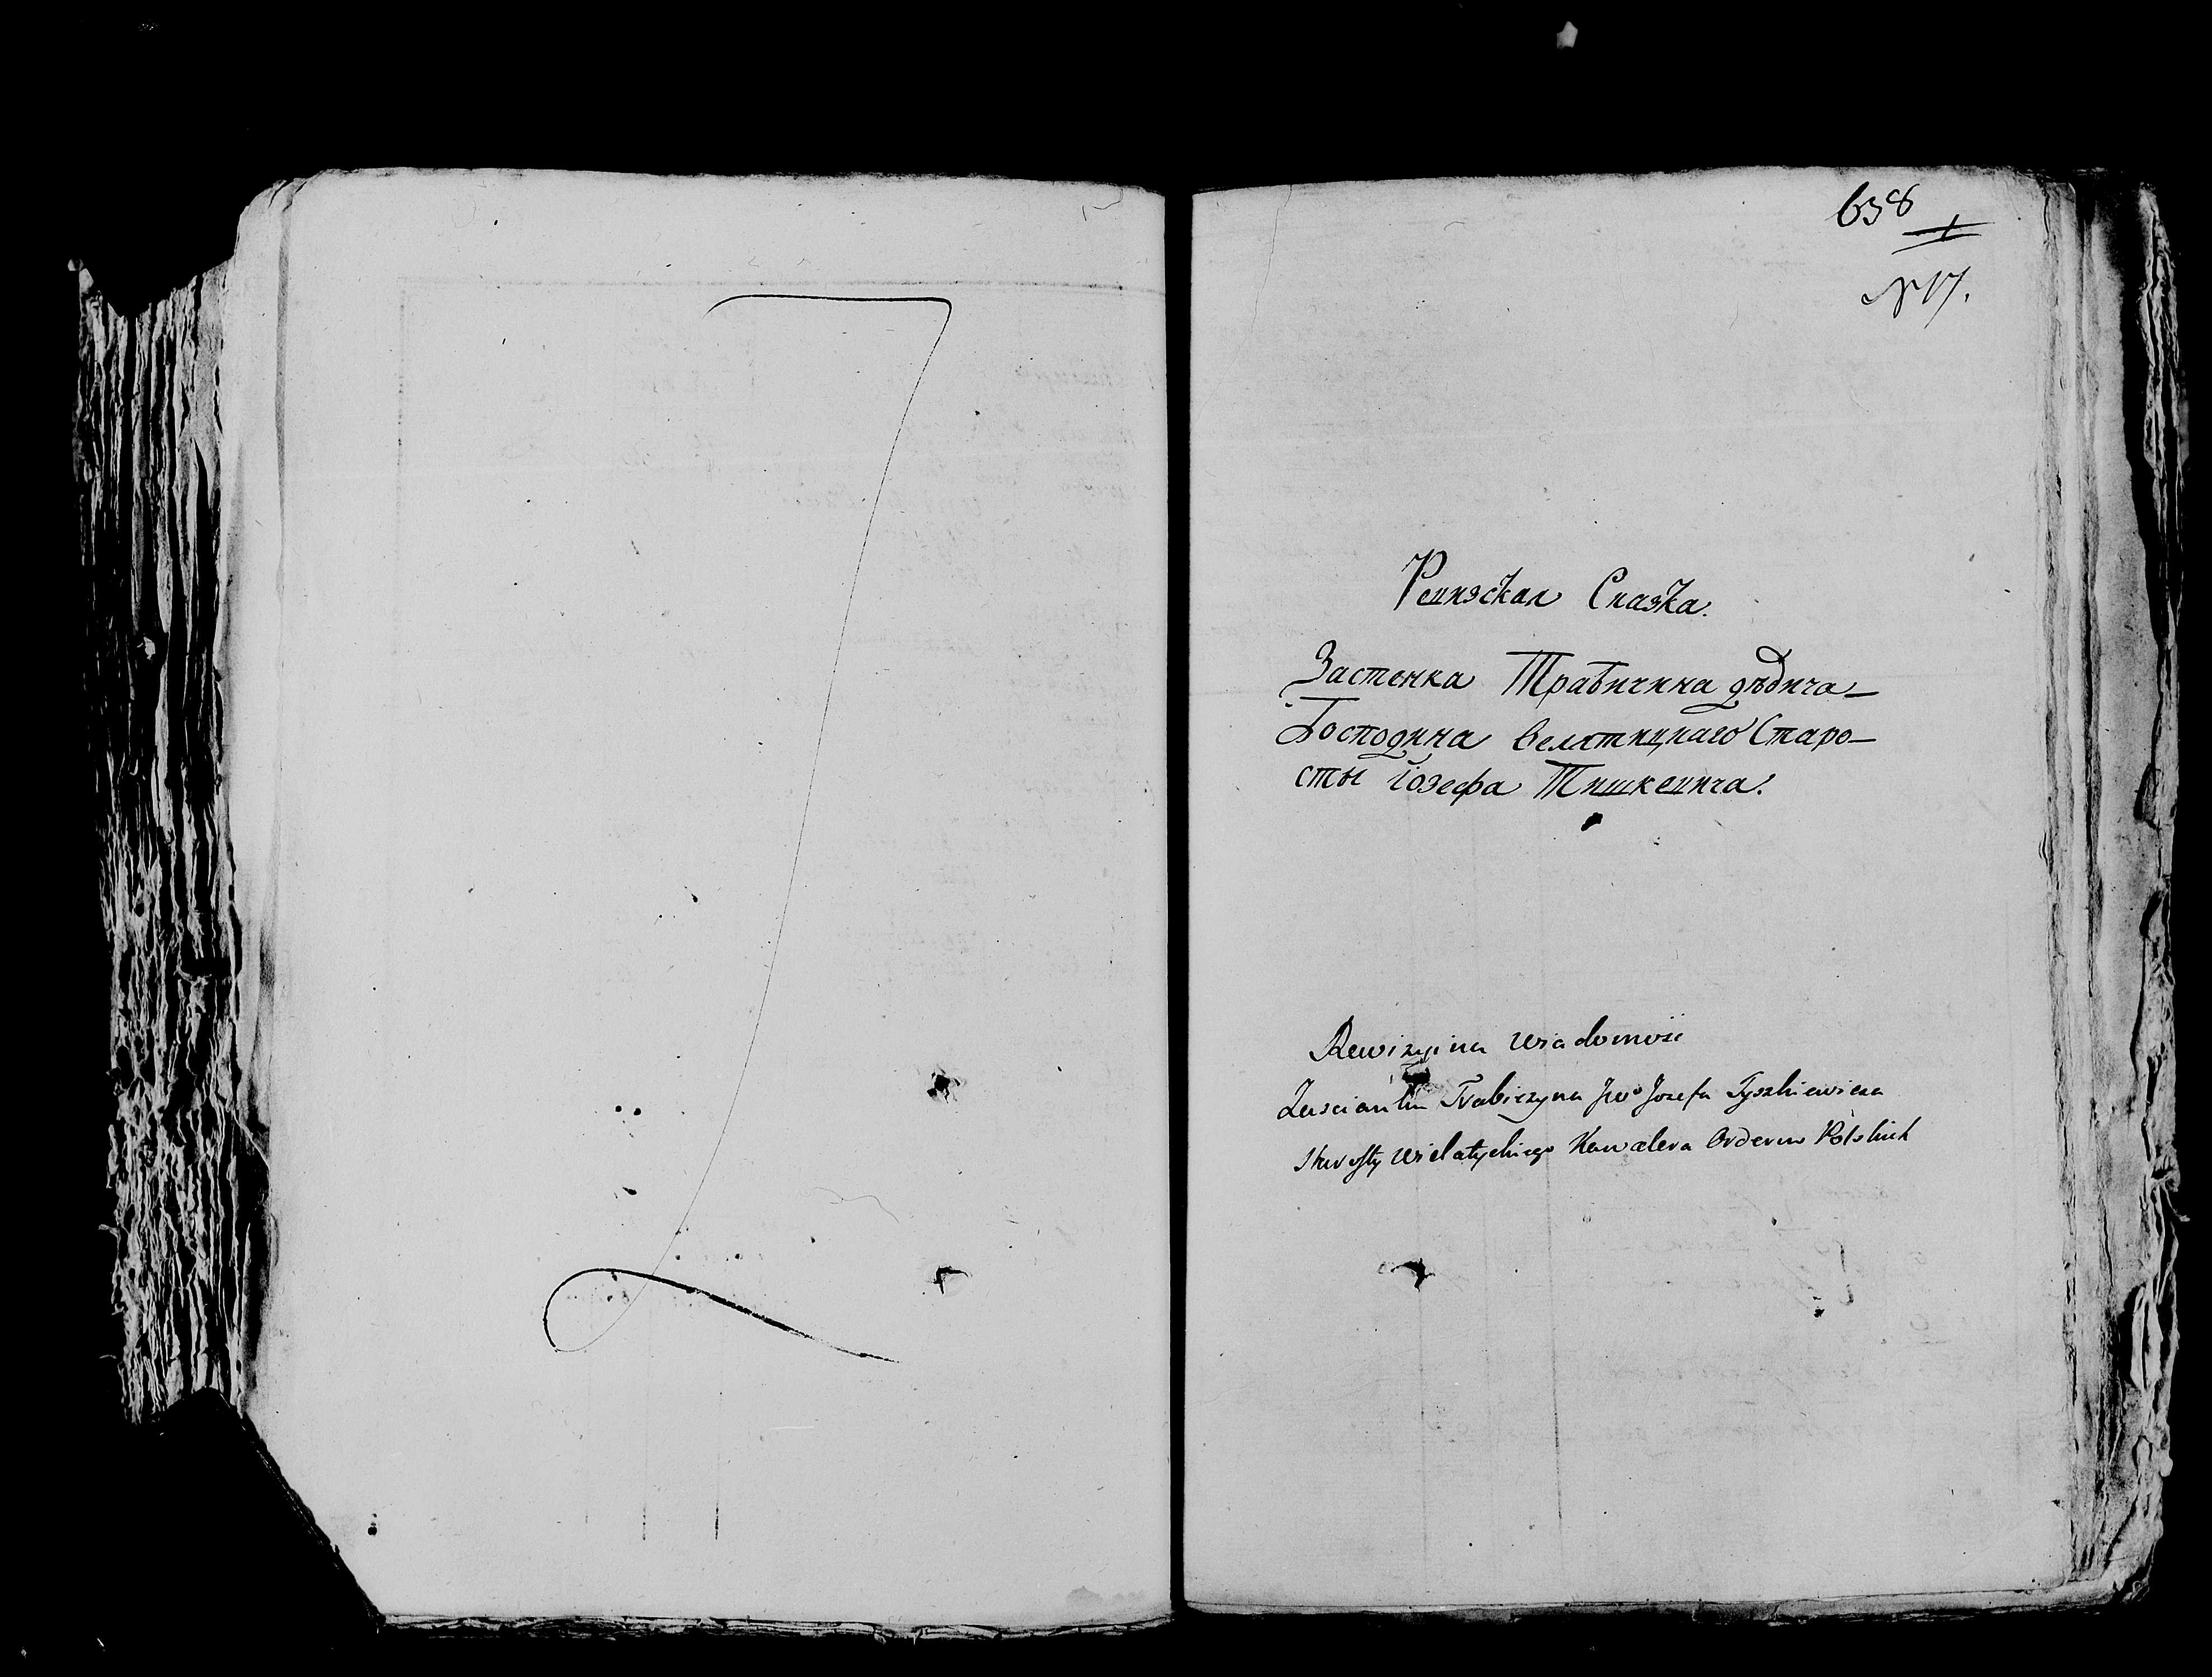 658
№ 17.
Ревизская Сказка.
Застенка Трабичина дѣдича
Господина велятицкаго Старо-
сты іозефа Тишкевича.
Rewizyina Wiadomość
Zascianku Trabiczyna Jwo Jozefa Tyszkiewicza
Starosty Wielatyckiego Kawalera Orderow Polskich